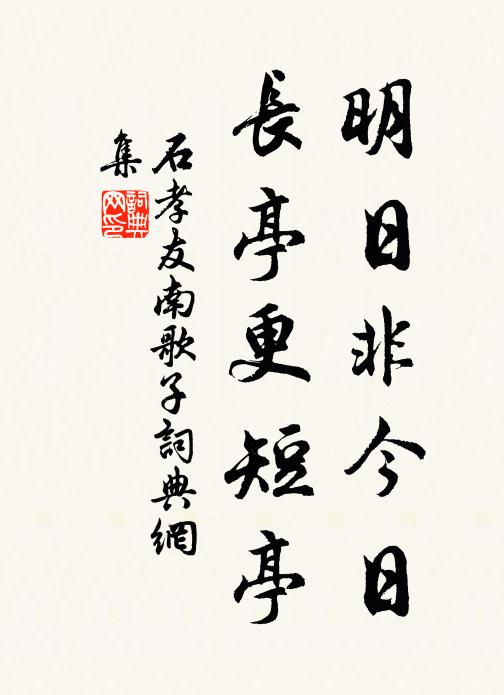 明日非今日
長亭更短亭
石孝友南歌子詞典網
集
詞典
网印